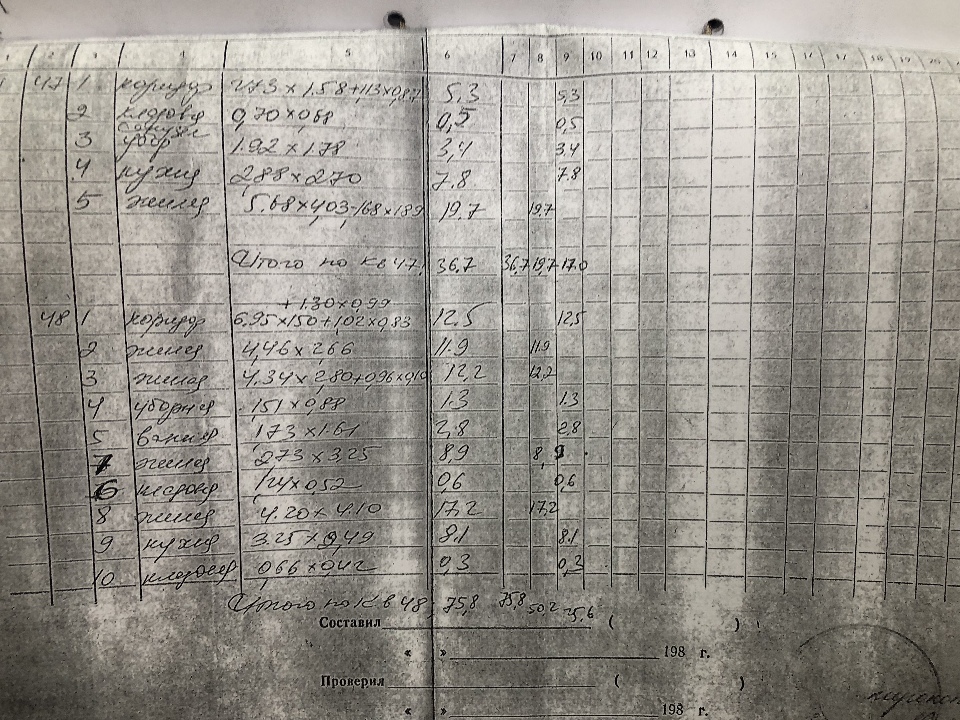 1 2 3 4 5 6 7 8 9 10 11 12 13 14 15 16 17 18 19 20
47 1 коридор 2,73 × 1,58 + 1,13 × 0,87 5,3 5,3
2 кладовая 0,70 × 0,68 0,5 0,5
3 совмещ убор 1.92 × 1.78 3,4 3.4
4 кухня 2,88 × 2,70 7.8 7,8
5 жилая 5.68 × 4,03 - 1,68 × 1,89 19,7 19,7
Итого по кв 47 36.7 36,7 19,7 17.0
+ 1.30 × 0,99
48 1 коридор 6,95 × 1,50 + 1,02 × 0,83 12.5 12,5
2 жилая 4,46 × 2,66 11.9 11.9
3 жилая 4.34 × 2,80 + 0,96 × 0,10 12,2 12,2
4 уборная 1,51 × 0,88 1.3 1.3
5 ванная 1,73 × 1.61 2,8 2,8
7 жилая 2,73 × 3,25 8,9 8,9
6 кладовая 1,21 × 0,52 0,6 0,6
8 жилая 4.20 × 4.10 17,2 17,2
9 кухня 3.25 × 2,49 8.1 8.1
10 кладовая 0,66 × 0,42 0,3 0,3
Итого по кв 48 75,8 75,8 50,2 25,6
Составил ( )
« » 198 г.
Проверил ( )
« » 198 г.